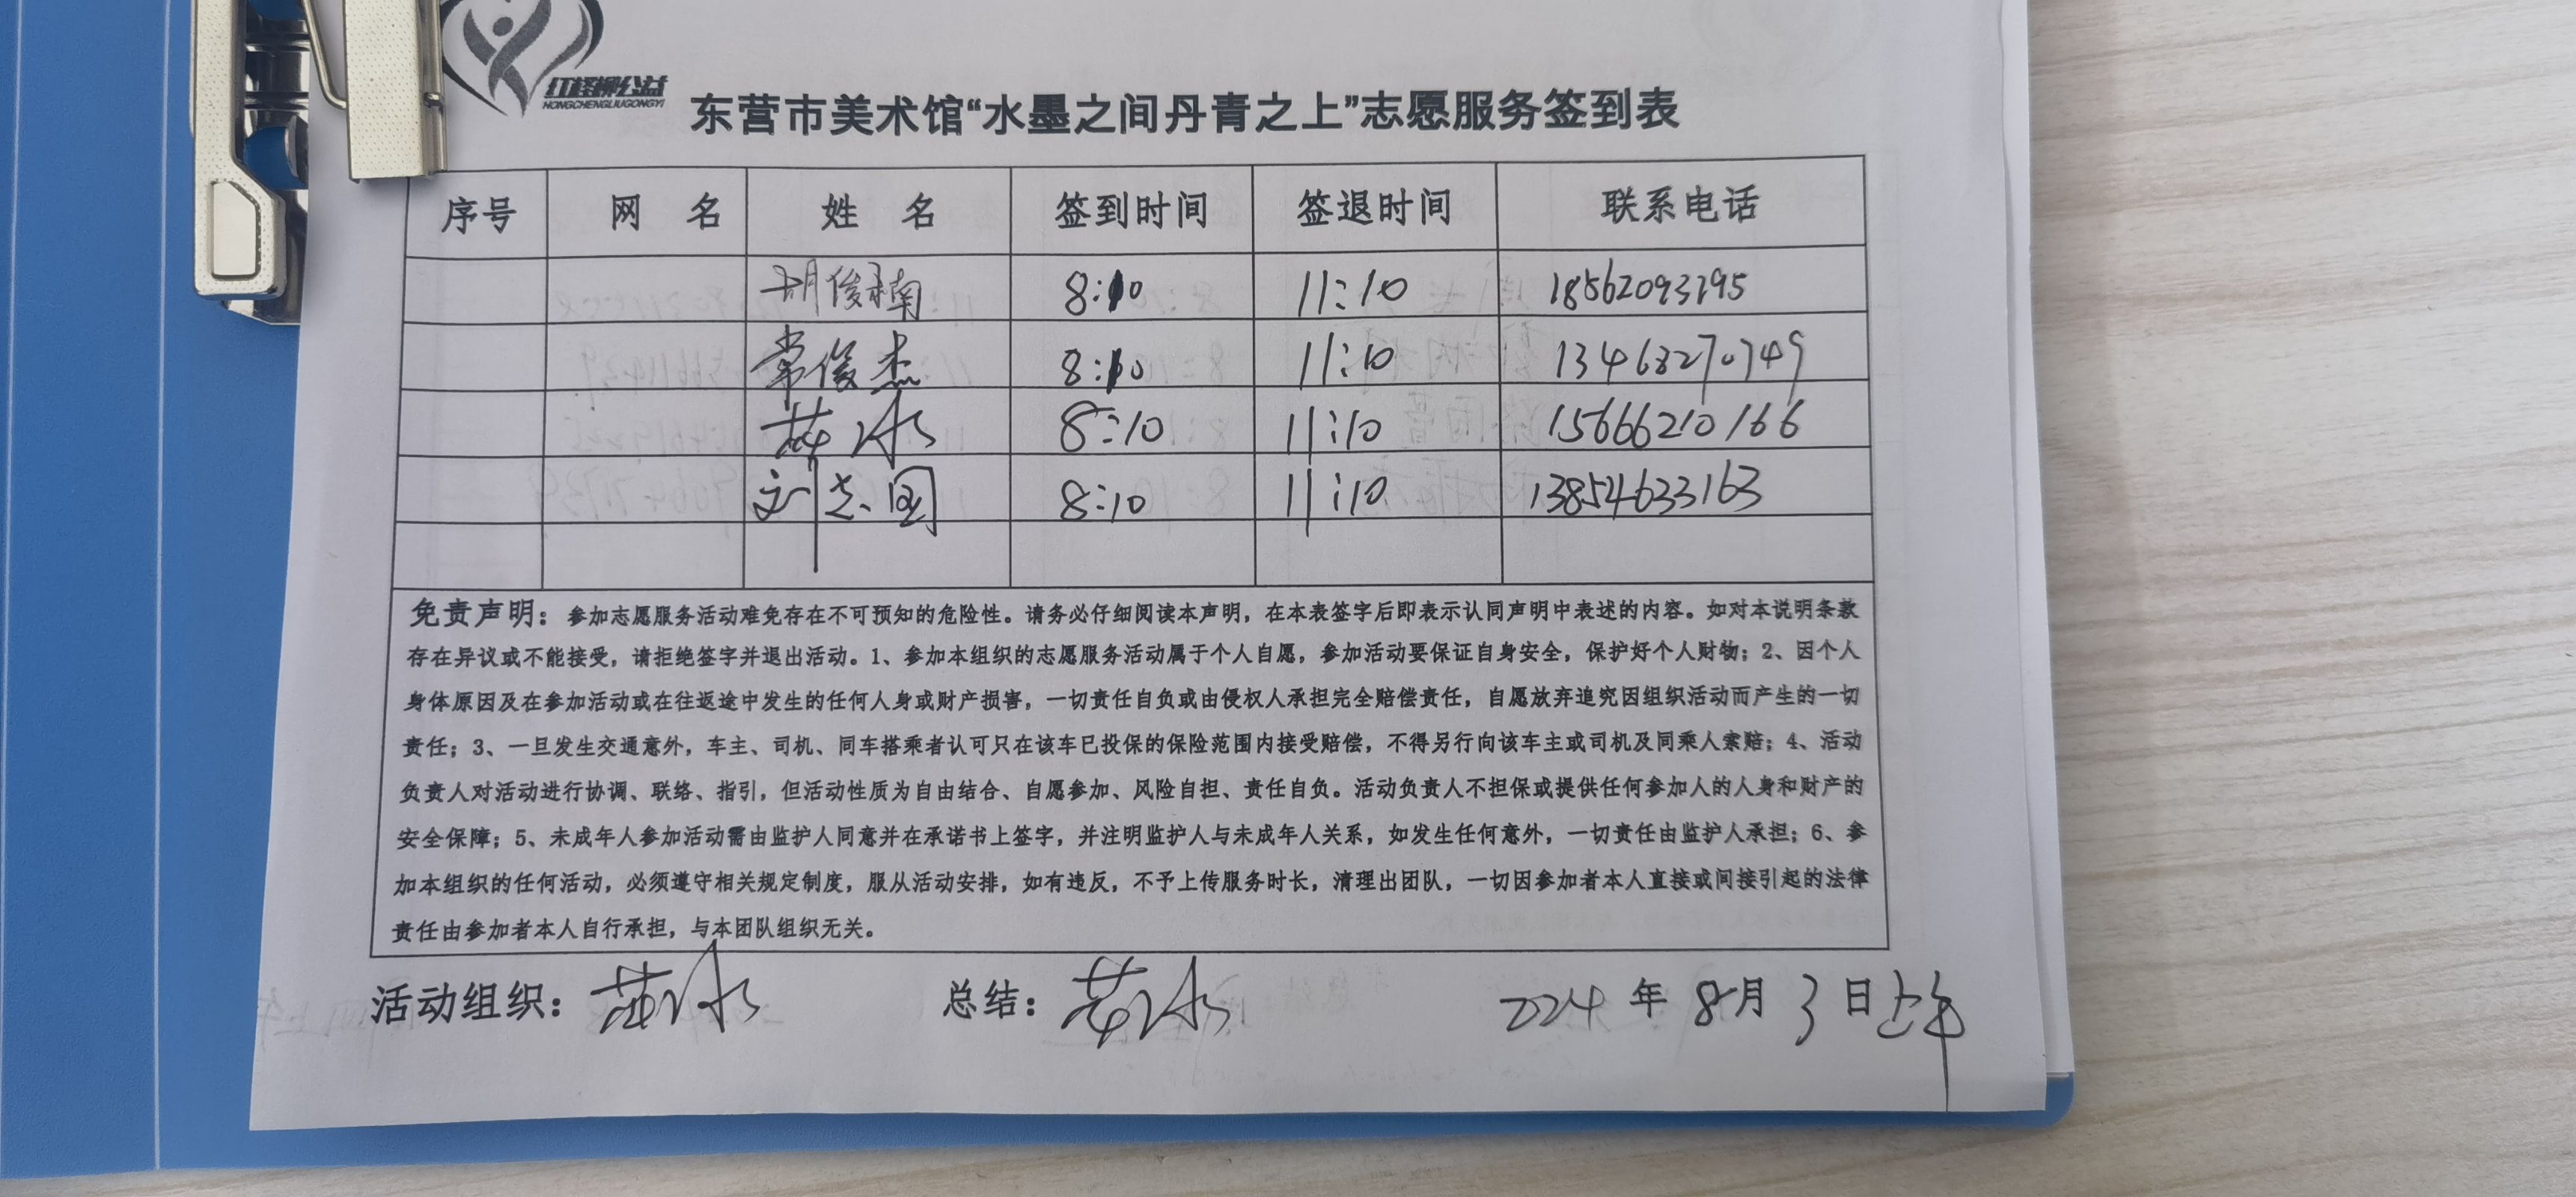 红柽柳公益
HONGCHENGLIUGONGYI
东营市美术馆“水墨之间丹青之上”志愿服务签到表
序号 网 名 姓 名 签到时间 签退时间 联系电话
胡俊楠 8:10 11:10 18562093795
常俊杰 8:10 11:10 13468270749
8:10 11:10 15666210166
刘志国 8:10 11:10 13854633163
免责声明：参加志愿服务活动难免存在不可预知的危险性。请务必仔细阅读本声明，在本表签字后即表示认同声明中表述的内容。如对本说明条款
存在异议或不能接受，请拒绝签字并退出活动。1、参加本组织的志愿服务活动属于个人自愿，参加活动要保证自身安全，保护好个人财物；2、因个人
身体原因及在参加活动或在往返途中发生的任何人身或财产损害，一切责任自负或由侵权人承担完全赔偿责任，自愿放弃追究因组织活动而产生的一切
责任；3、一旦发生交通意外，车主、司机、同车搭乘者认可只在该车已投保的保险范围内接受赔偿，不得另行向该车主或司机及同乘人索赔；4、活动
负责人对活动进行协调、联络、指引，但活动性质为自由结合、自愿参加、风险自担、责任自负。活动负责人不担保或提供任何参加人的人身和财产的
安全保障；5、未成年人参加活动需由监护人同意并在承诺书上签字，并注明监护人与未成年人关系，如发生任何意外，一切责任由监护人承担；6、参
加本组织的任何活动，必须遵守相关规定制度，服从活动安排，如有违反，不予上传服务时长，清理出团队，一切因参加者本人直接或间接引起的法律
责任由参加者本人自行承担，与本团队组织无关。
活动组织： 总结： 2024 年 8 月 3 日上午